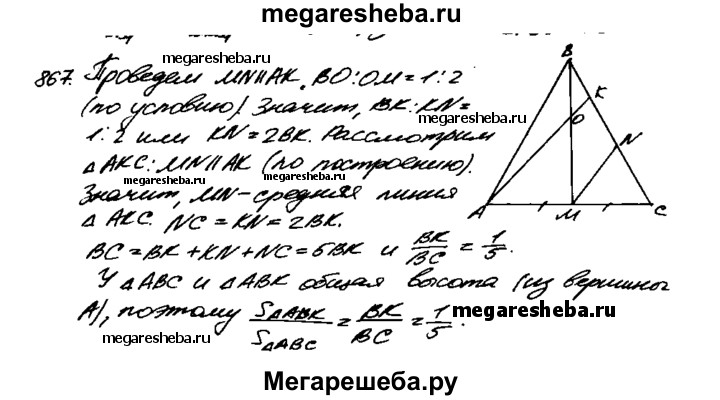 megaresheba.ru
867. Проведем MN∥AK. BO:OM=1:2
megaresheba.ru
(по условию). Значит, BK:KN=
1:2 или KN=2BK. Рассмотрим
△AKC: MN∥AK (по построению).
megaresheba.ru
Значит, MN-средняя линия
△AKC. NC=KN=2BK.
BC=BK+KN+NC=5BK и BK/BC=1/5.
megaresheba.ru
У △ABC и △ABK общая высота (из вершины
A), поэтому S△ABK/S△ABC=BK/BC=1/5.
megaresheba.ru
megaresheba.ru
B
K
O
N
A
M
C
Мегарешеба.ру